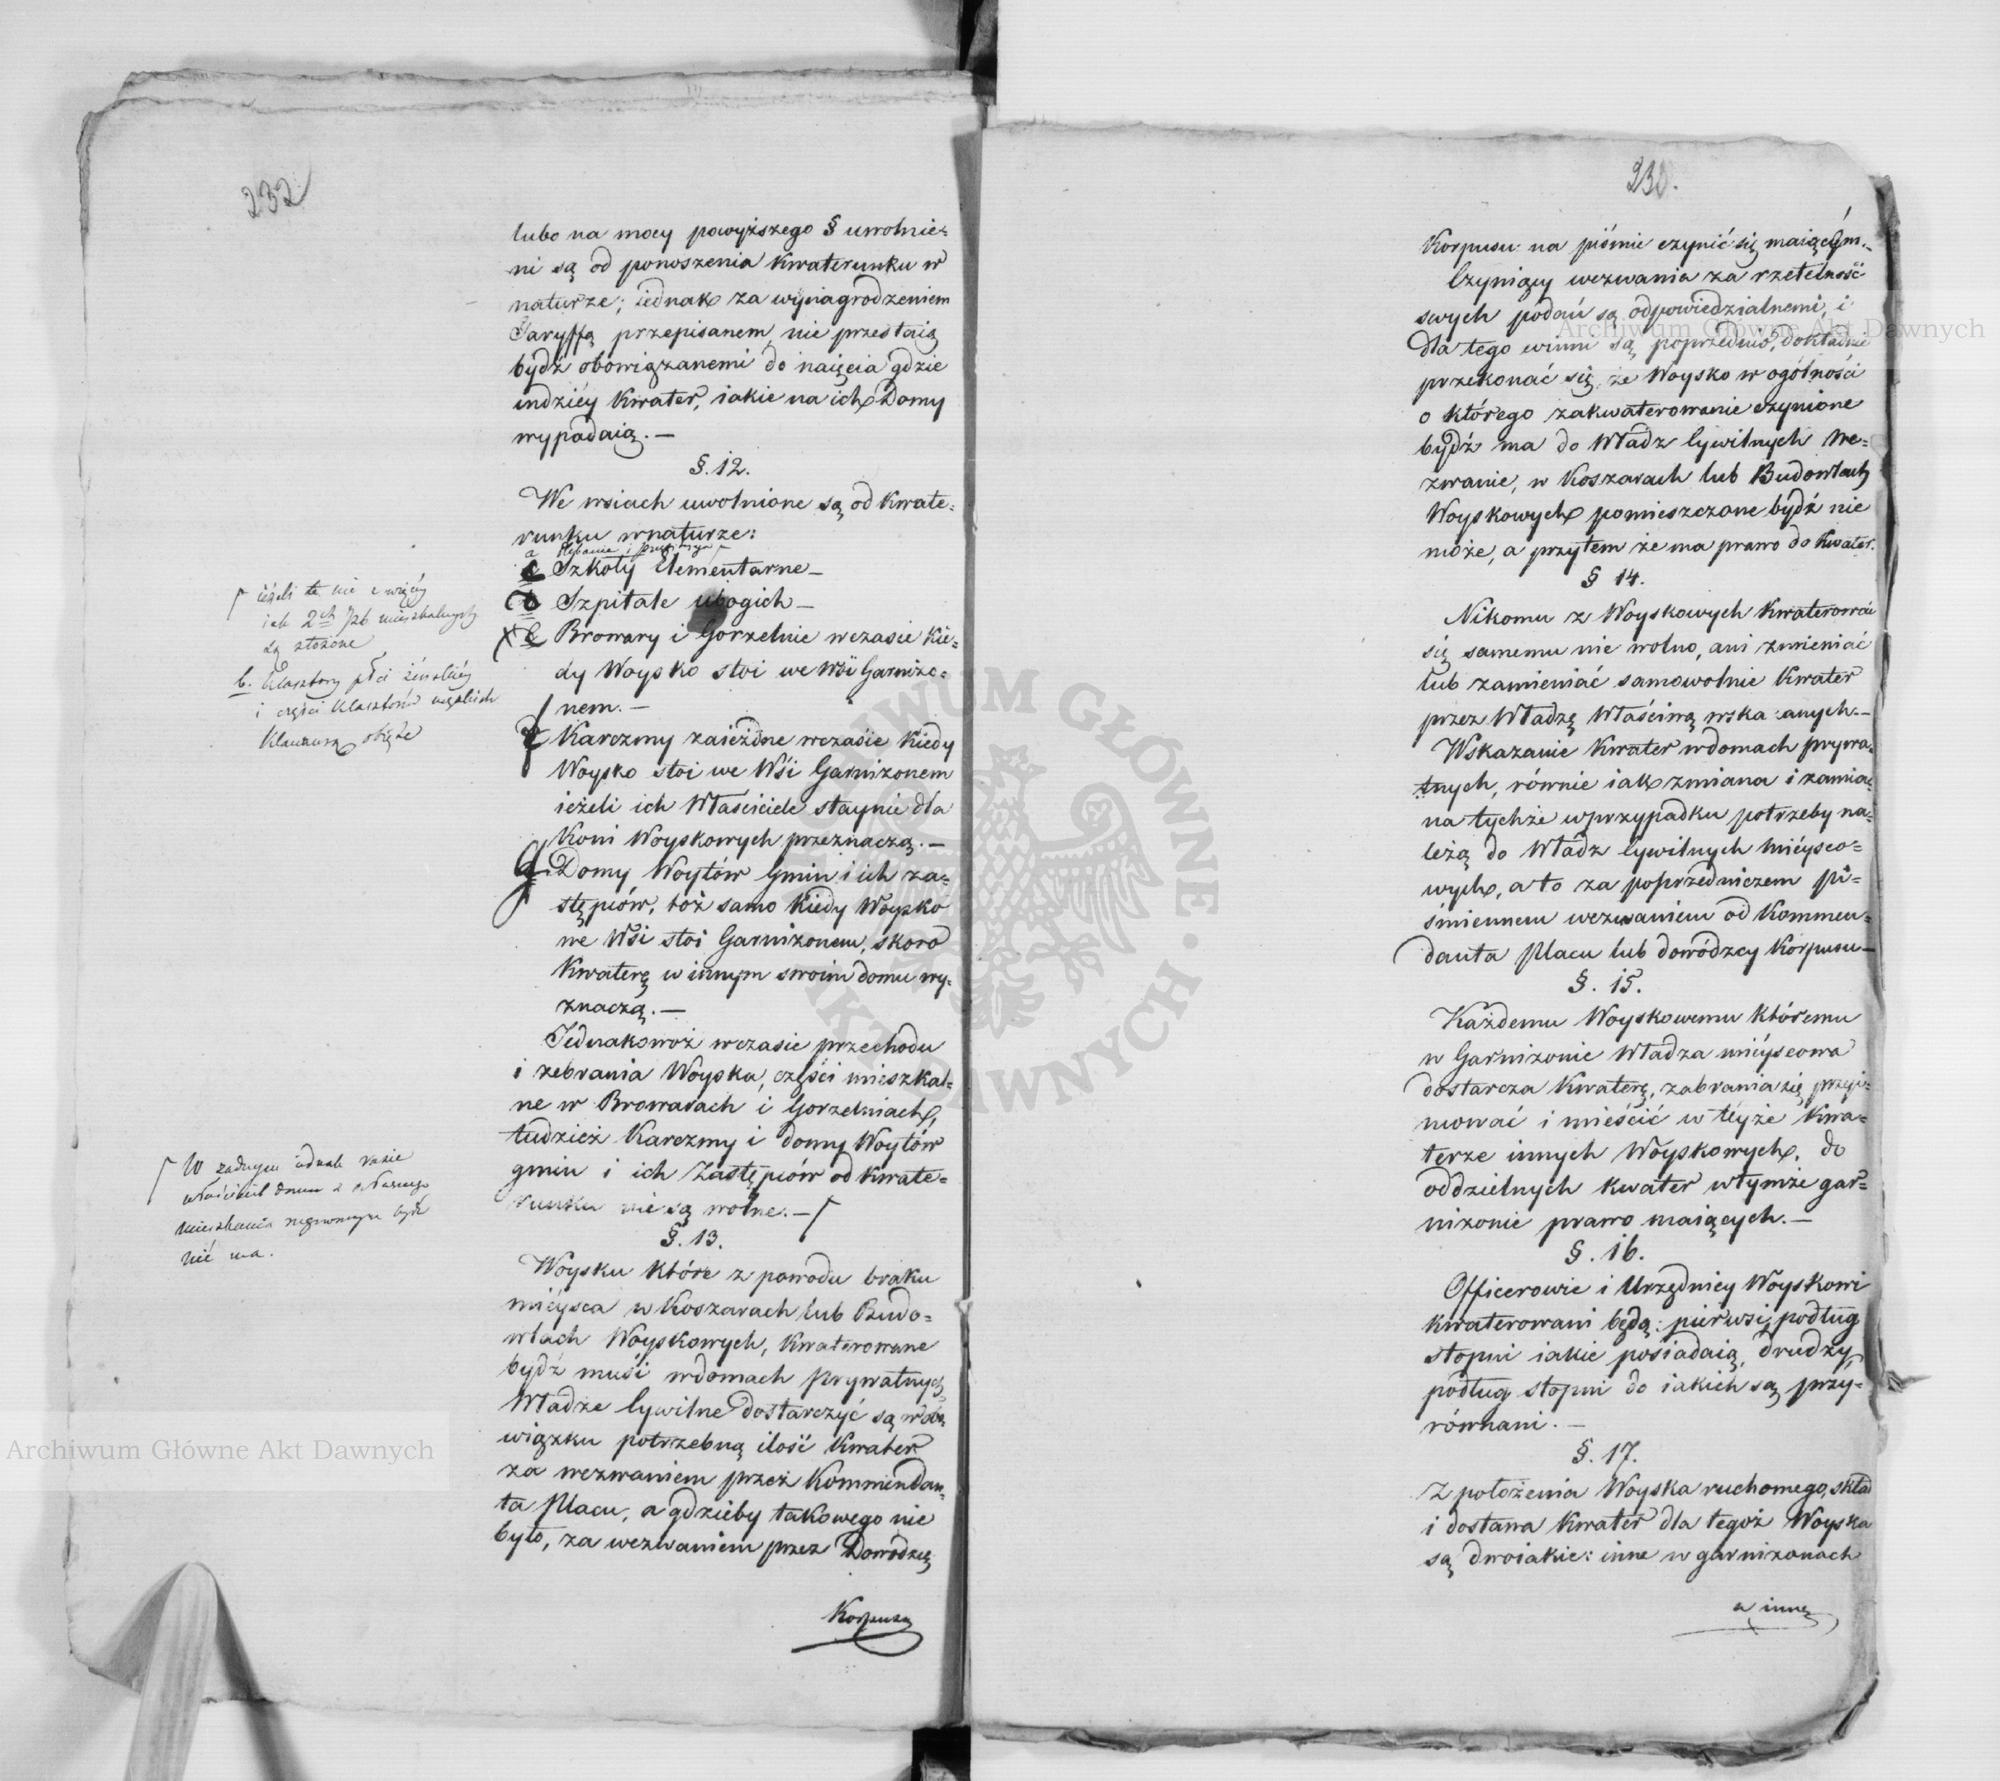 232
lubo na mocy powyższego § uwolnie=
ni są od ponoszenia Kwaterunku w
naturze; iednak za wynagrodzeniem
Taryffą przepisanem, nie przestaią
bydź obowiązanemi do naięcia gdzie
indziéy Kwater, iakie na ich Domy
wypadaią. —
§. 12.
We wsiach uwolnione są od Kwate=
runku w naturze:
a Plebanie i
c Szkoły Elementarne —
d Szpitale ubogich —
e Browary i Gorzelnie w czasie Kie=
dy Woysko stoi we Wsi Garnizo=
nem. —
f Karczmy zaieżdne w czasie Kiedy
Woysko stoi we Wsi Garnizonem
ieżeli ich Właściciele staynie dla
Koni Woyskowych przeznaczą. —
g. Domy Woytów Gmin i ich za=
stępców, tóż samo Kiedy Woysko
we Wsi stoi Garnizonem, skoro
Kwaterę w innym swoim domu wy=
znaczą. —
Jednakowoż w czasie przechodu
i zebrania Woyska, części mieszkal=
ne w Browarach i Gorzelniach,
tudzież Karczmy i domy Woytów
gmin i ich Zastępców od Kwate=
runku nie są wolne. —
§. 13.
Woysku które z powodu braku
miéysca w Koszarach lub Budo=
wlach Woyskowych, Kwaterowane
bydź musi w domach prywatnych
Władze Cywilne dostarczyć są w obo=
wiązku potrzebną ilość Kwater
za wezwaniem przez Kommendan=
ta Placu, a gdzieby takowego nie
było, za wezwaniem przez Dowódzcę
Korpusu
ieżeli te nie z więcéy
iak 2ch Izb mieszkalnych
są złożone
b. Klasztory płci żeńskiéy
i części Klasztorów męzkich
Klauzurą obięte
W żadnym iednak razie
właściciel domu z własnego
mieszkania rugowanym bydź
nié ma.
230.
Korpusu na piśmie czynić się maiącym. —
Czyniący wezwania za rzetelność
swych podań są odpowiedzialnemi, i
dla tego winni są poprzednio, dokładnie
przekonać się, że Woysko w ogólności
o którego zakwaterowanie czynione
bydź ma do Władz Cywilnych we=
zwanie, w Koszarach lub Budowlach
Woyskowych pomieszczone bydź nie
może, a przytem że ma prawo do Kwater.
§ 14.
Nikomu z Woyskowych Kwaterować
się samemu nie wolno, ani zmieniać
lub zamieniać samowolnie Kwater
przez Władzę Właściwą wskazanych. —
Wskazanie Kwater w domach prywa=
tnych, równie iak zmiana i zamia=
na tychże w przypadku potrzeby na=
leżą do Władz Cywilnych miéysco=
wych, a to za poprzedniczem pi=
śmiennem wezwaniem od Kommen=
danta Placu lub dowódzcy Korpusu —
§. 15.
Każdemu Woyskowemu któremu
w Garnizonie Władza miéyscowa
dostarcza Kwaterę, zabrania się przyi=
mować i mieścić w téyże Kwa=
terze innych Woyskowych, do
oddzielnych Kwater w tymże gar=
nizonie prawo maiących. —
§. 16.
Officerowie i Urzędnicy Woyskowi
kwaterowani będą: pierwsi, podług
stopni iakie posiadaią, drudzy,
podług stopni do iakich są przy=
równani. —
§. 17.
Z położenia Woyska ruchomego, skład
i dostawa Kwater dla tegoż Woyska
są dwoiakie: inne w garnizonach
a inne
Archiwum Główne Akt Dawnych
Archiwum Główne Akt Dawnych
ARCHIWUM GŁÓWNE AKT DAWNYCH